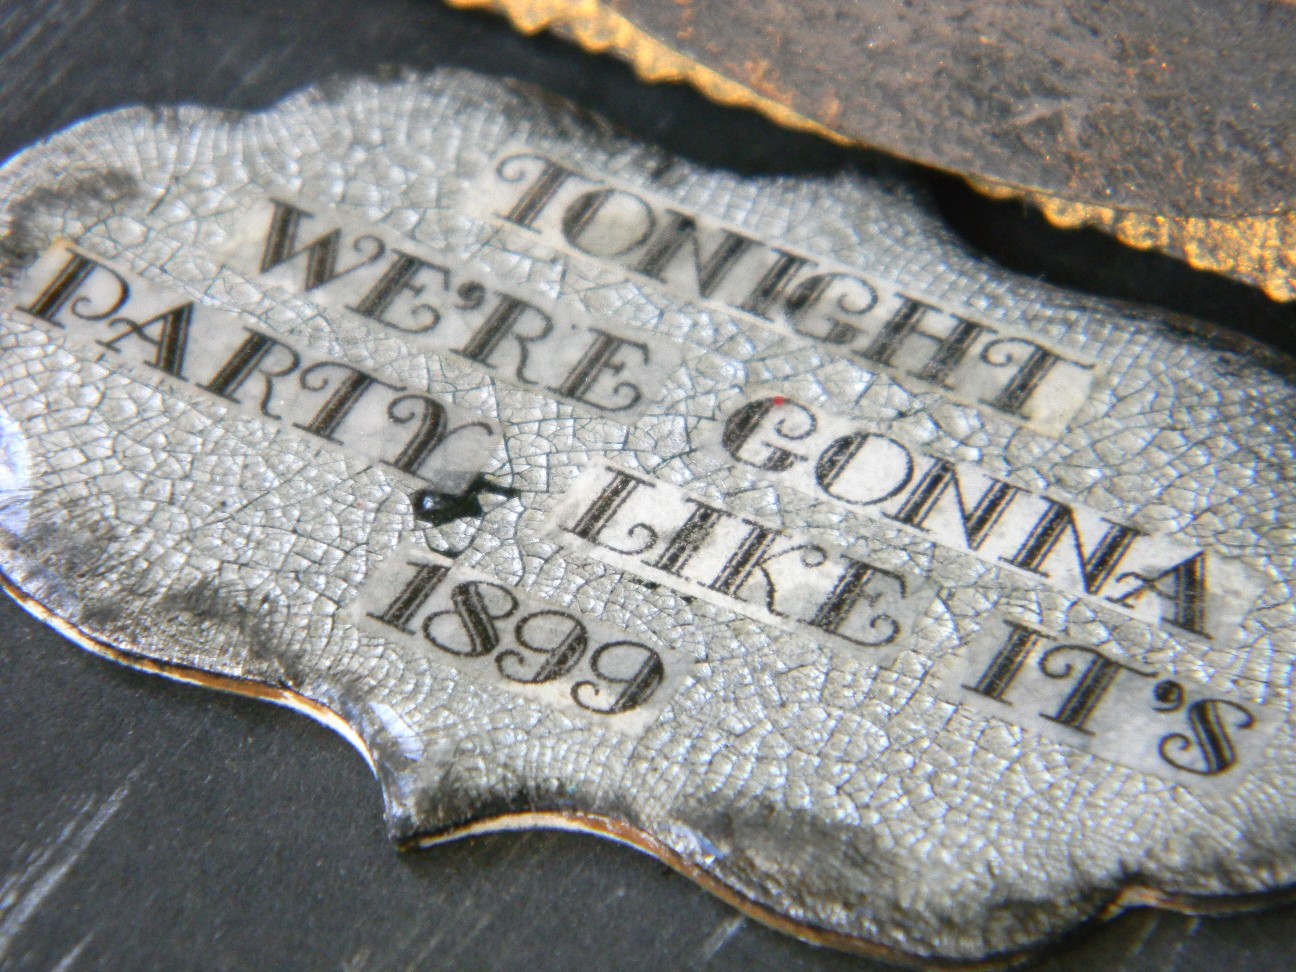 TONIGHT
WE'RE GONNA
PARTY LIKE IT'S
1899